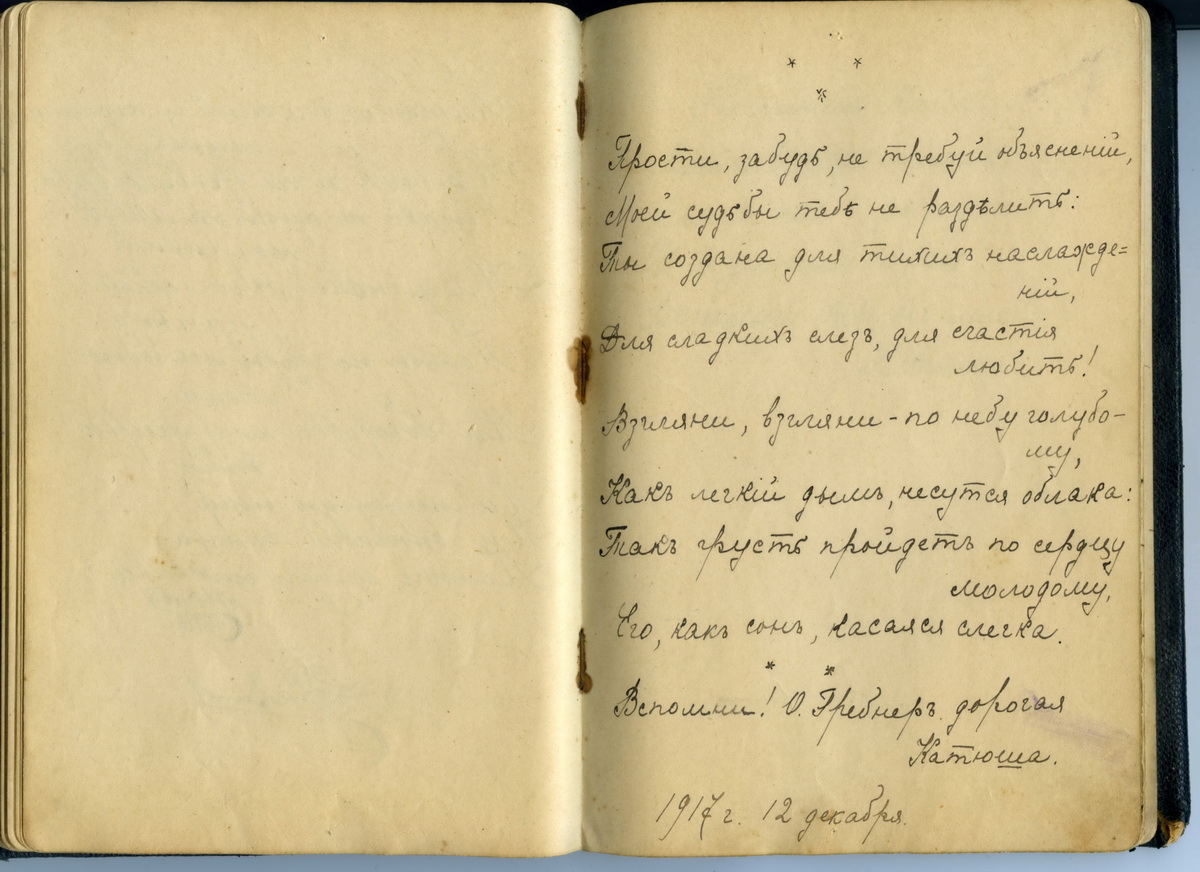 * *
*
Прости, забудь, не требуй объясненій,
Моей судьбы тебѣ не раздѣлить:
Ты создана для тихихъ наслажде=
ній,
Для сладкихъ слезъ, для счастія
любить!
Взгляни, взгляни - по небу голубо-
му,
Какъ легкій дымъ, несутся облака:
Такъ грусть пройдетъ по сердцу
молодому,
Его, какъ сонъ, касаяся слегка.
* *
Вспомни! О. Гребнеръ дорогая
Катюша.
1917 г. 12 декабря.